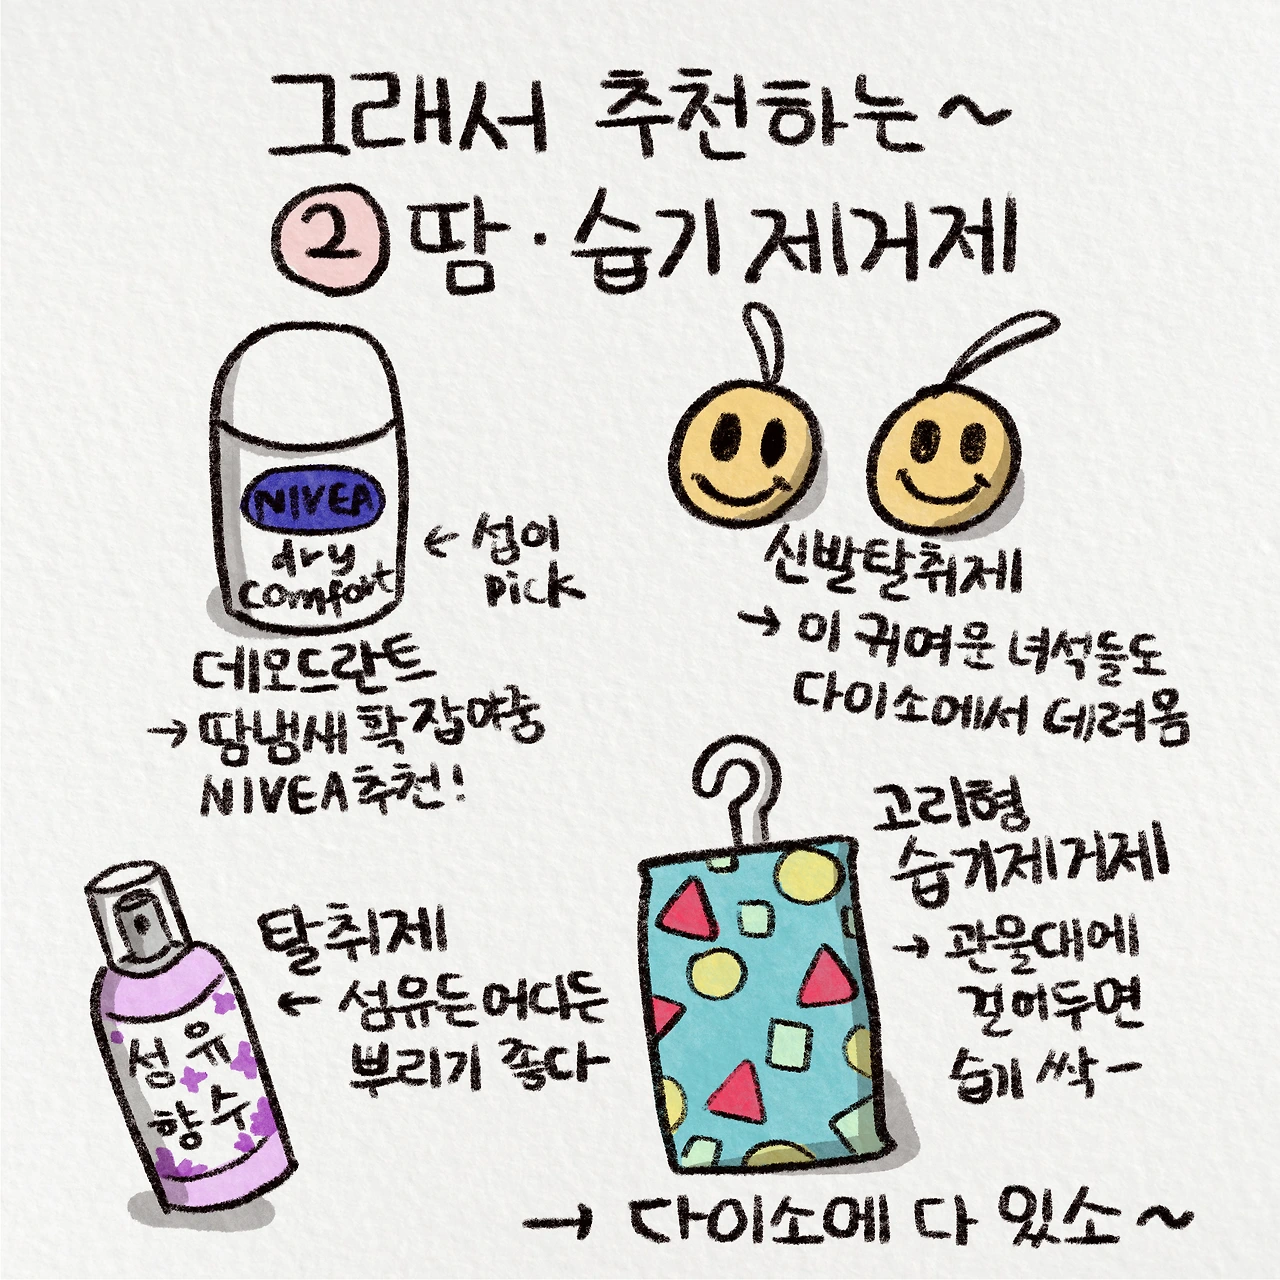 그래서 추천하는~
② 땀·습기 제거제
NIVEA
dry
comfort
← 섬이
pick
데오드란트
→ 땀냄새 확 잡아줌
NIVEA 추천!
신발탈취제
→ 이 귀여운 녀석들도
다이소에서 데려옴
고리형
습기제거제
→ 관물대에
걸어두면
습기 싹-
탈취제
← 섬유든 어디든
뿌리기 좋다
섬유
향수
→ 다이소에 다 있소~